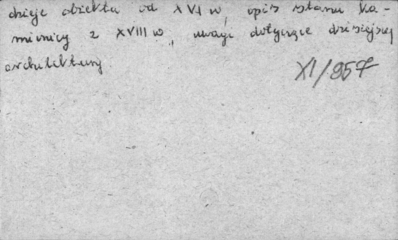 dzieje obiektu od XVI w, opis stanu ka-
mienicy z XVIII w, uwagi dotyczące dzisiejszej
architektury
XI/957